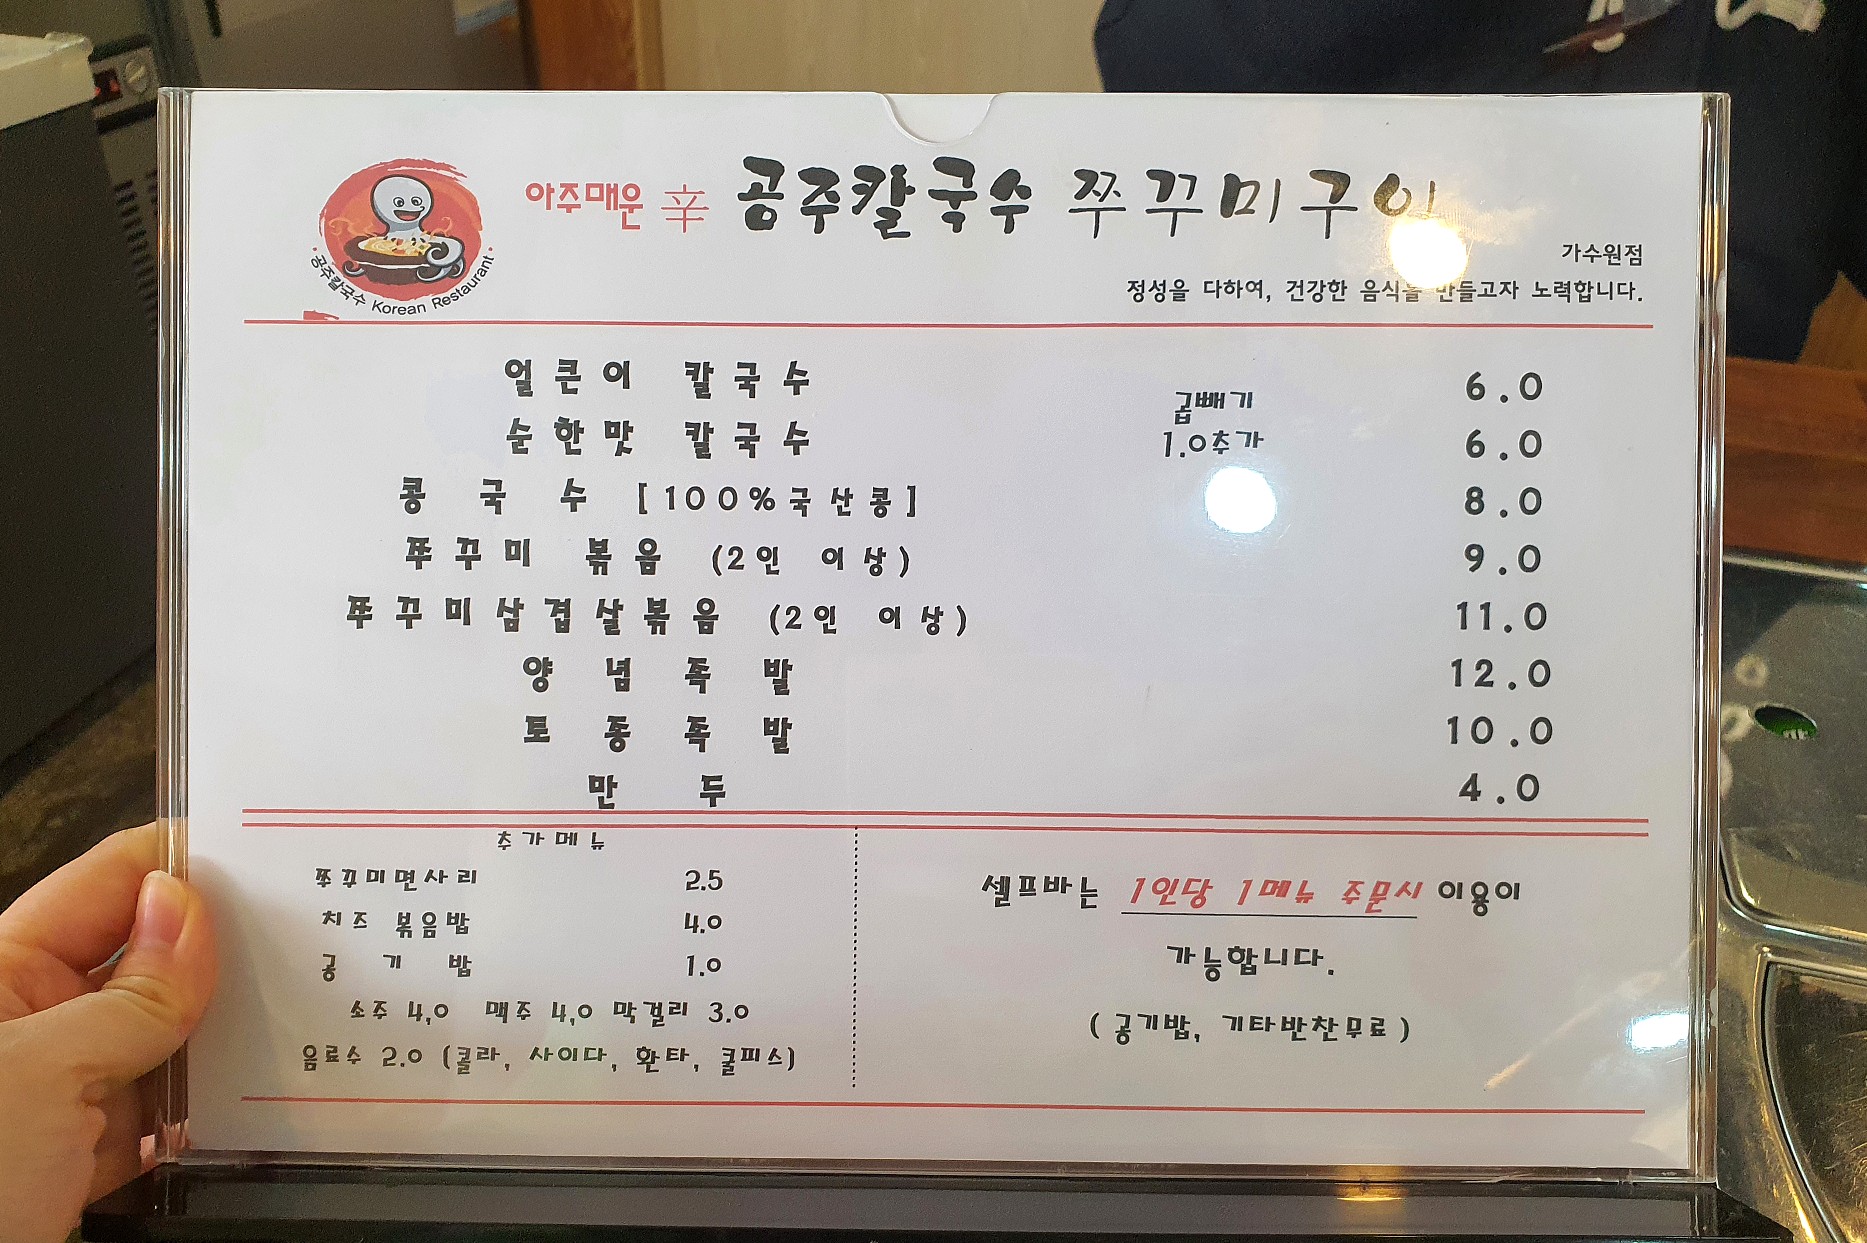 아주매운 辛 공주칼국수 쭈꾸미구이
공주칼국수 Korean Restaurant
가수원점
정성을 다하여, 건강한 음식을 만들고자 노력합니다.
얼큰이 칼국수 6.0
순한맛 칼국수 6.0
곱빼기
1.0추가
콩국수 [100%국산콩] 8.0
쭈꾸미 볶음 (2인 이상) 9.0
쭈꾸미삼겹살볶음 (2인 이상) 11.0
양념족발 12.0
토종족발 10.0
만두 4.0
추가메뉴
쭈꾸미면사리 2.5
치즈 볶음밥 4.0
공기밥 1.0
소주 4,0 맥주 4,0 막걸리 3.0
음료수 2.0 (콜라, 사이다, 환타, 쿨피스)
셀프바는 1인당 1메뉴 주문시 이용이
가능합니다.
(공기밥, 기타반찬무료)